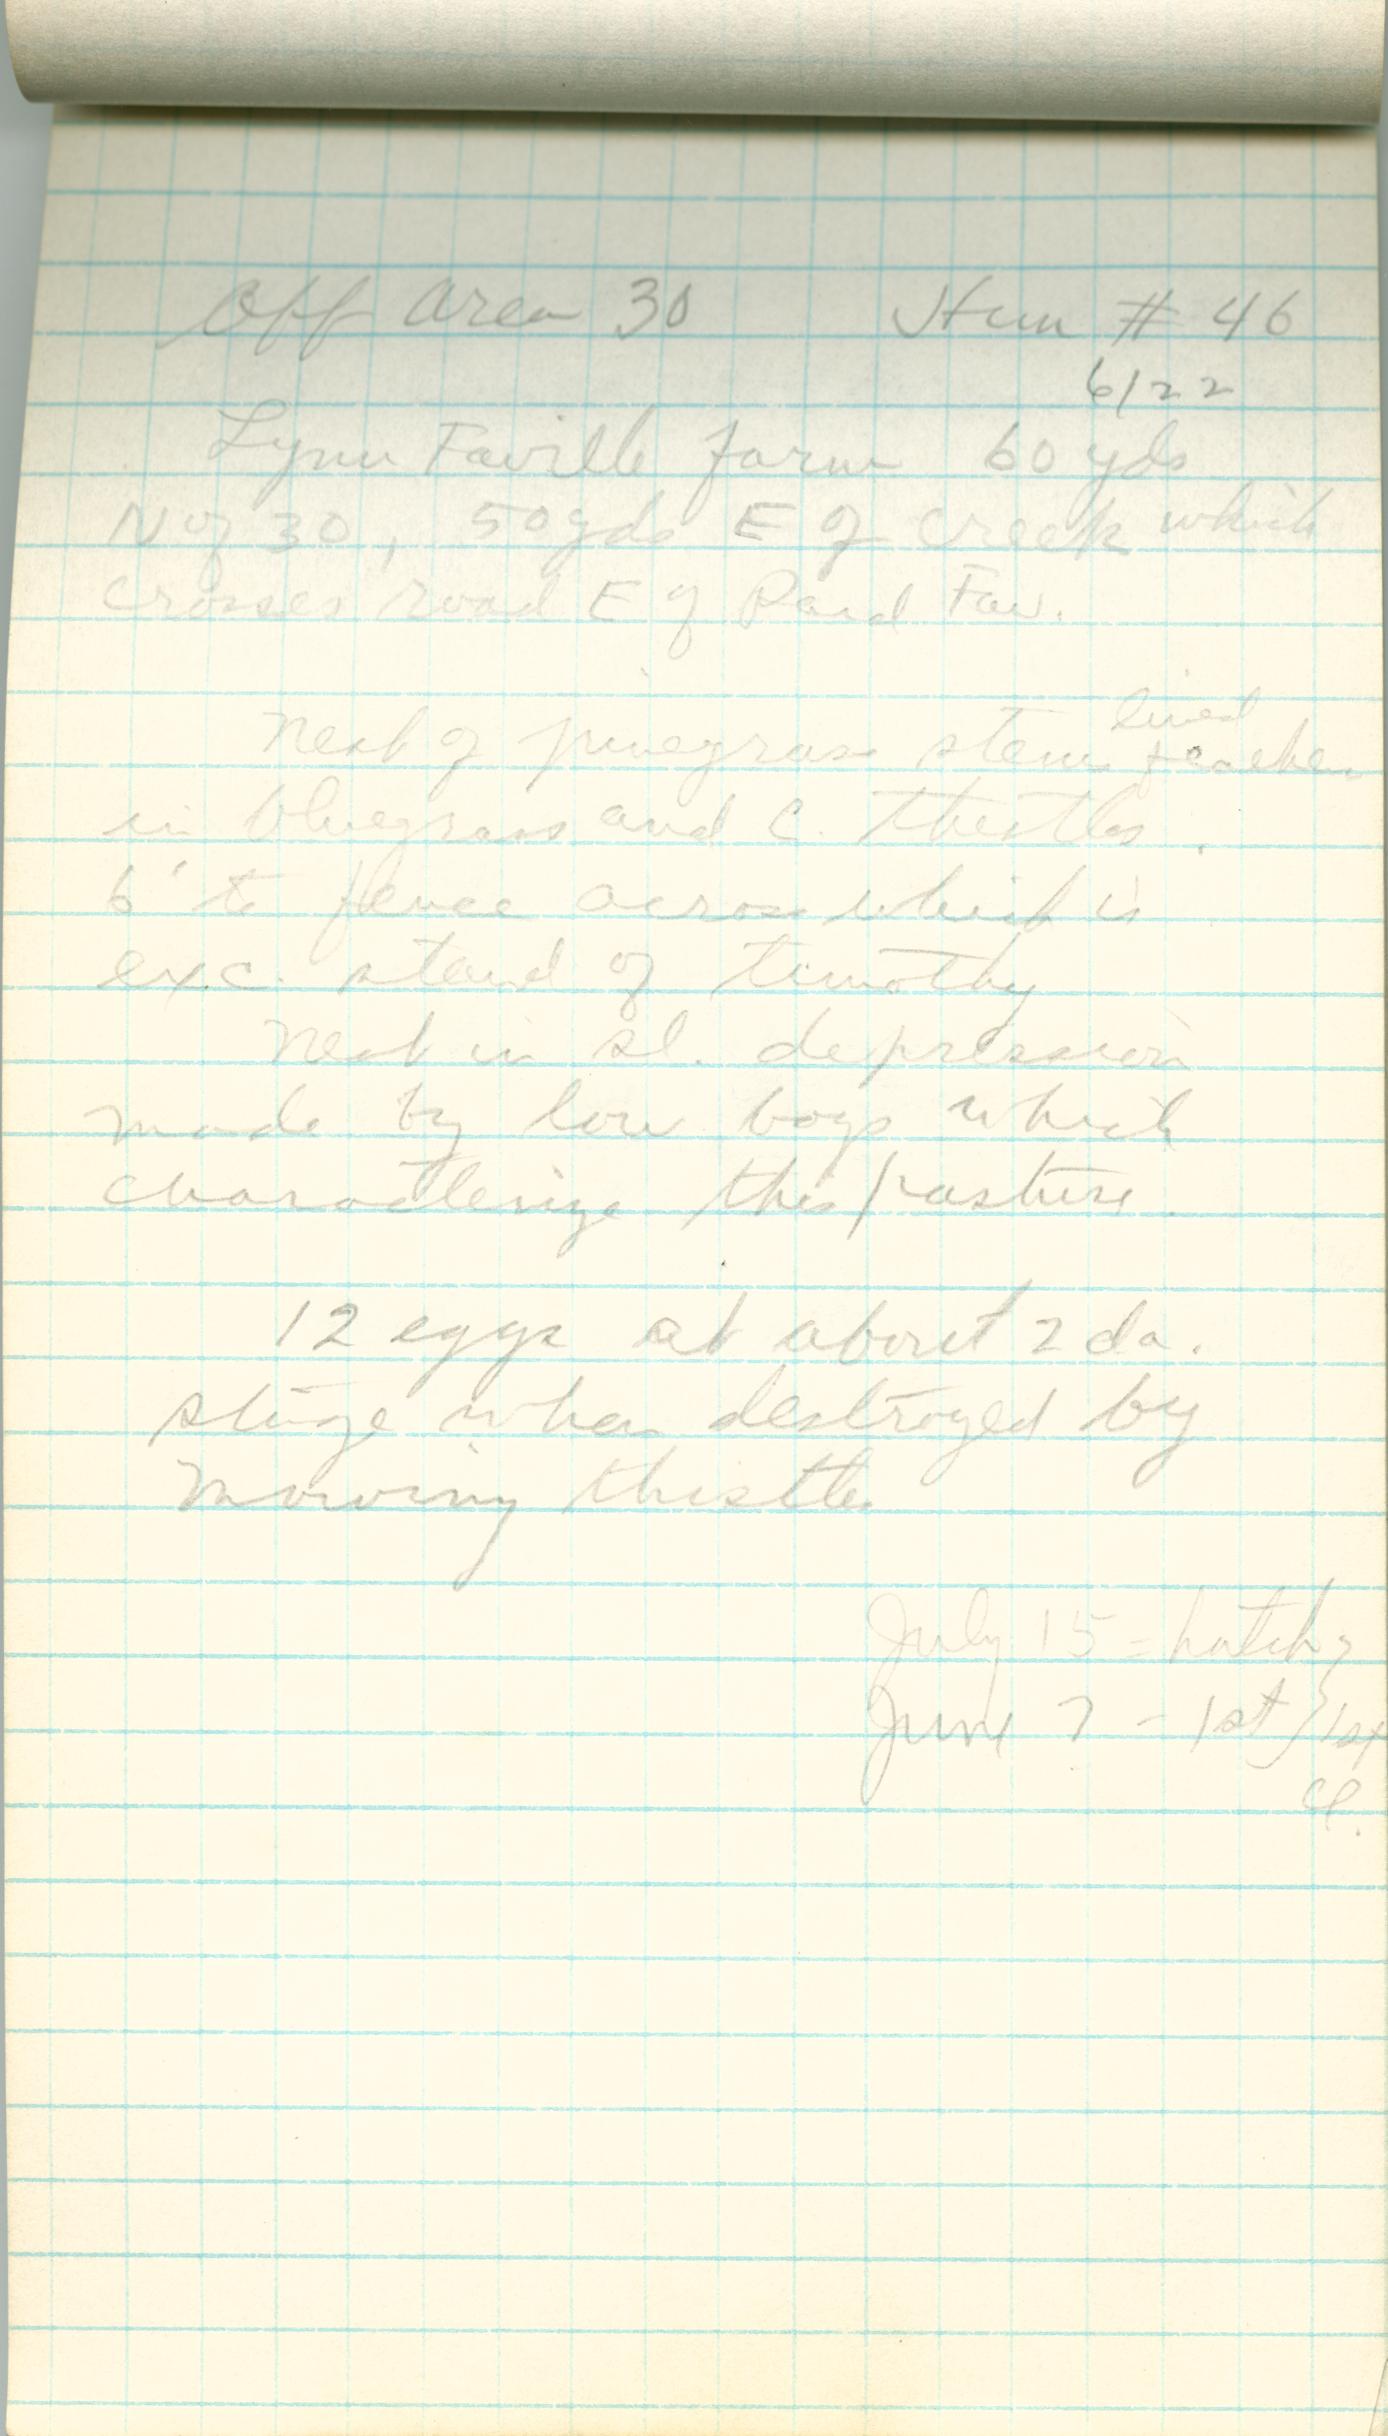 Off Area 30 Hun # 46
6/22
Lynn Faville farm 60 yds
N of 30, 50 yds E of creek which
crosses road E of Pond Fav.
Nest of junegrass stems lined feathers
in bluegrass and C. thistles.
6' to fence across which is
exc. stand of timothy
Nest in sl. depression
made by low bogs which
characterize this pasture.
12 eggs at about 2 da.
stage when destroyed by
mowing thistle
July 15 = hatch
June 7 - 1st } 1st
cl.